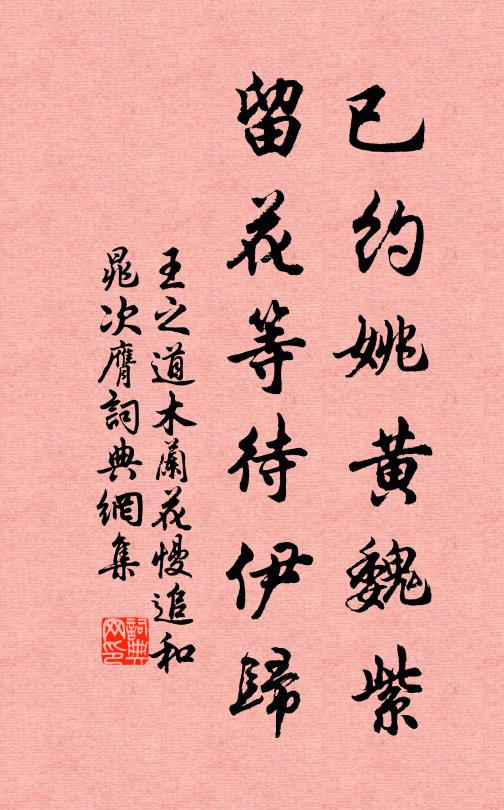 已约姚黄魏紫
留花等待伊歸
王之道木蘭花慢追和
晁次膺詞典網集
詞典網印